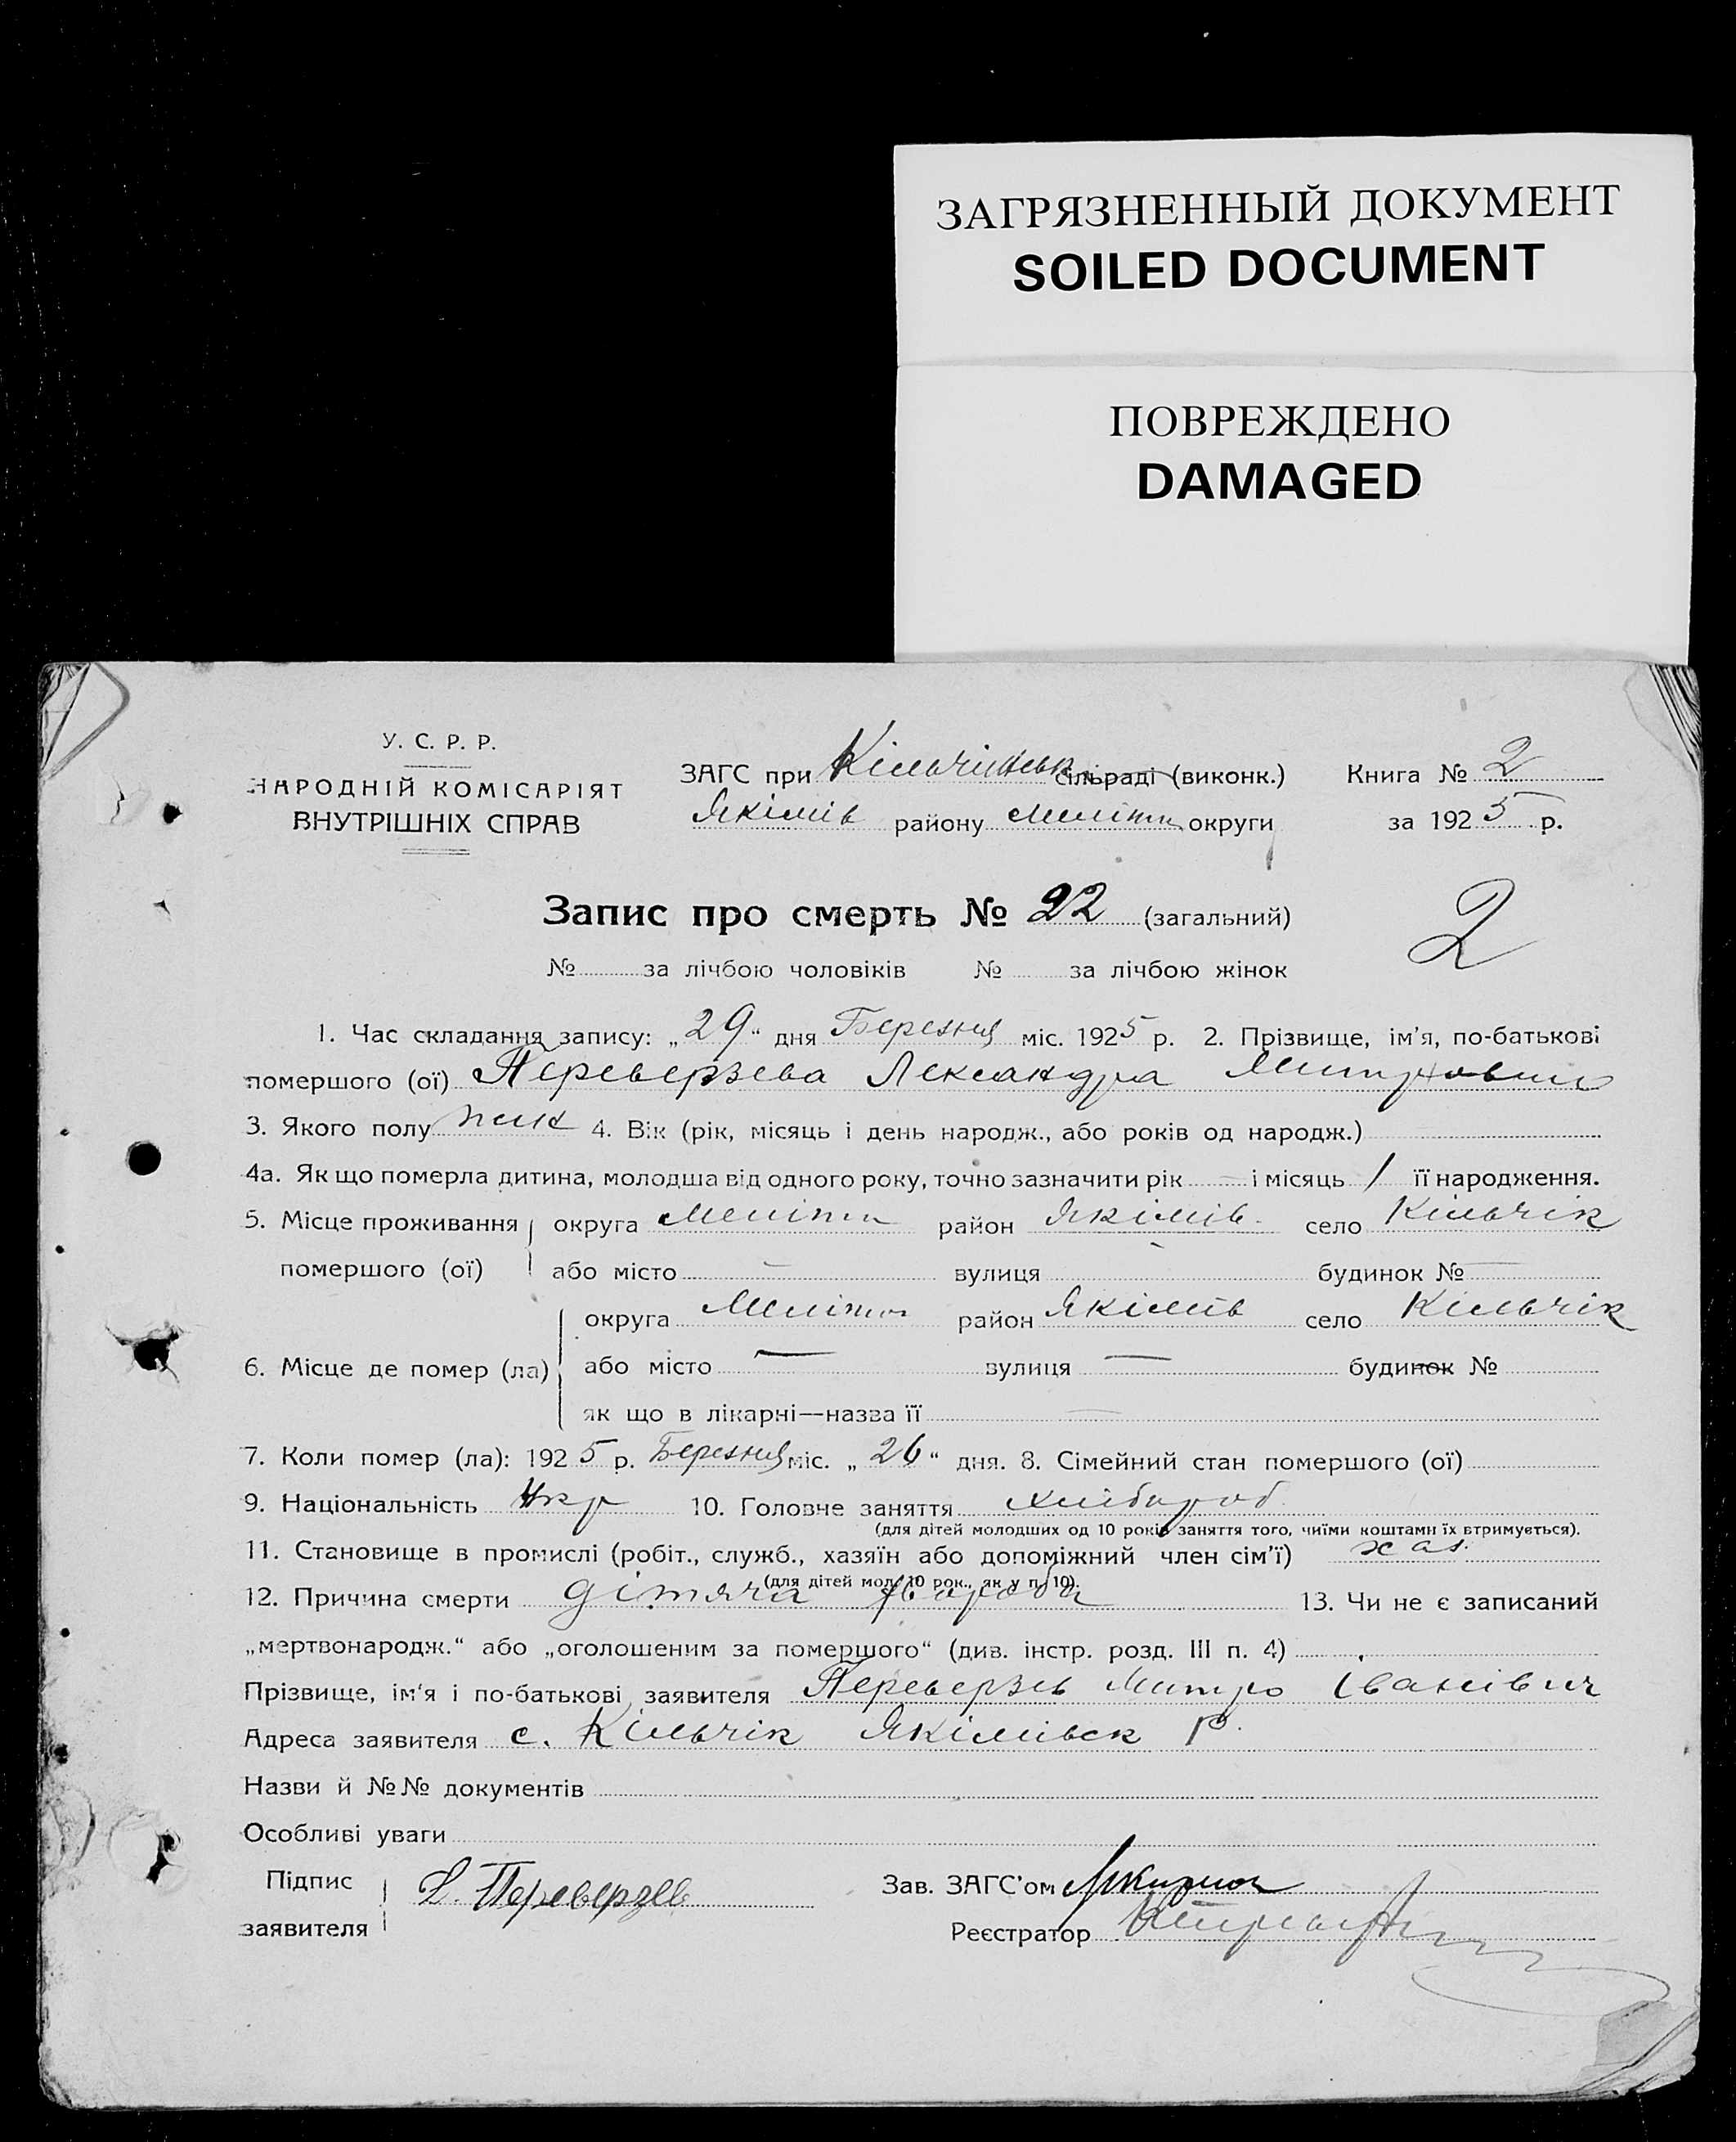 ЗАГРЯЗНЕННЫЙ ДОКУМЕНТ
SOILED DOCUMENT
ПОВРЕЖДЕНО
DAMAGED
У. С. Р. Р.
НАРОДНІЙ КОМІСАРІЯТ
ВНУТРІШНІХ СПРАВ
ЗАГС при Кільчицьк сільраді (виконк.)
Якімів району Меліт округи
Книга № 2
за 1925 р.
Запис про смерть № 22 (загальний)
2
№ за лічбою чоловіків № за лічбою жінок
1. Час складання запису: „29“ дня Березня міс. 1925 р. 2. Прізвище, ім'я, по-батькові
помершого (ої) Переверзева Лександра
3. Якого полу жін 4. Вік (рік, місяць і день народж., або років од народж.)
4а. Як що померла дитина, молодша від одного року, точно зазначити рік — і місяць 1 її народження.
5. Місце проживання округа Меліт район Якімів село Кільчік
помершого (ої) або місто — вулиця — будинок № —
округа Меліт район Якімів село Кільчік
6. Місце де помер (ла) або місто — вулиця — будинок №
як що в лікарні—назва її —
7. Коли помер (ла): 1925 р. Березня міс. „26“ дня. 8. Сімейний стан помершого (ої)
9. Національність Укр 10. Головне заняття хлібороб
(для дітей молодших од 10 років заняття того, чиїми коштами їх втримується).
11. Становище в промислі (робіт., служб., хазяїн або допоміжний член сім'ї) хаз.
(для дітей мол. 10 рок., як у п. 10).
12. Причина смерти дітяча хвороба 13. Чи не є записаний
„мертвонародж.“ або „оголошеним за помершого“ (див. інстр. розд. III п. 4)
Прізвище, ім'я і по-батькові заявителя Переверзев Митро Іванівич
Адреса заявителя с. Кільчік Якімівськ р.
Назви й №№ документів
Особливі уваги
Підпис
заявителя Д. Переверзев
Зав. ЗАГС'ом
Реєстратор